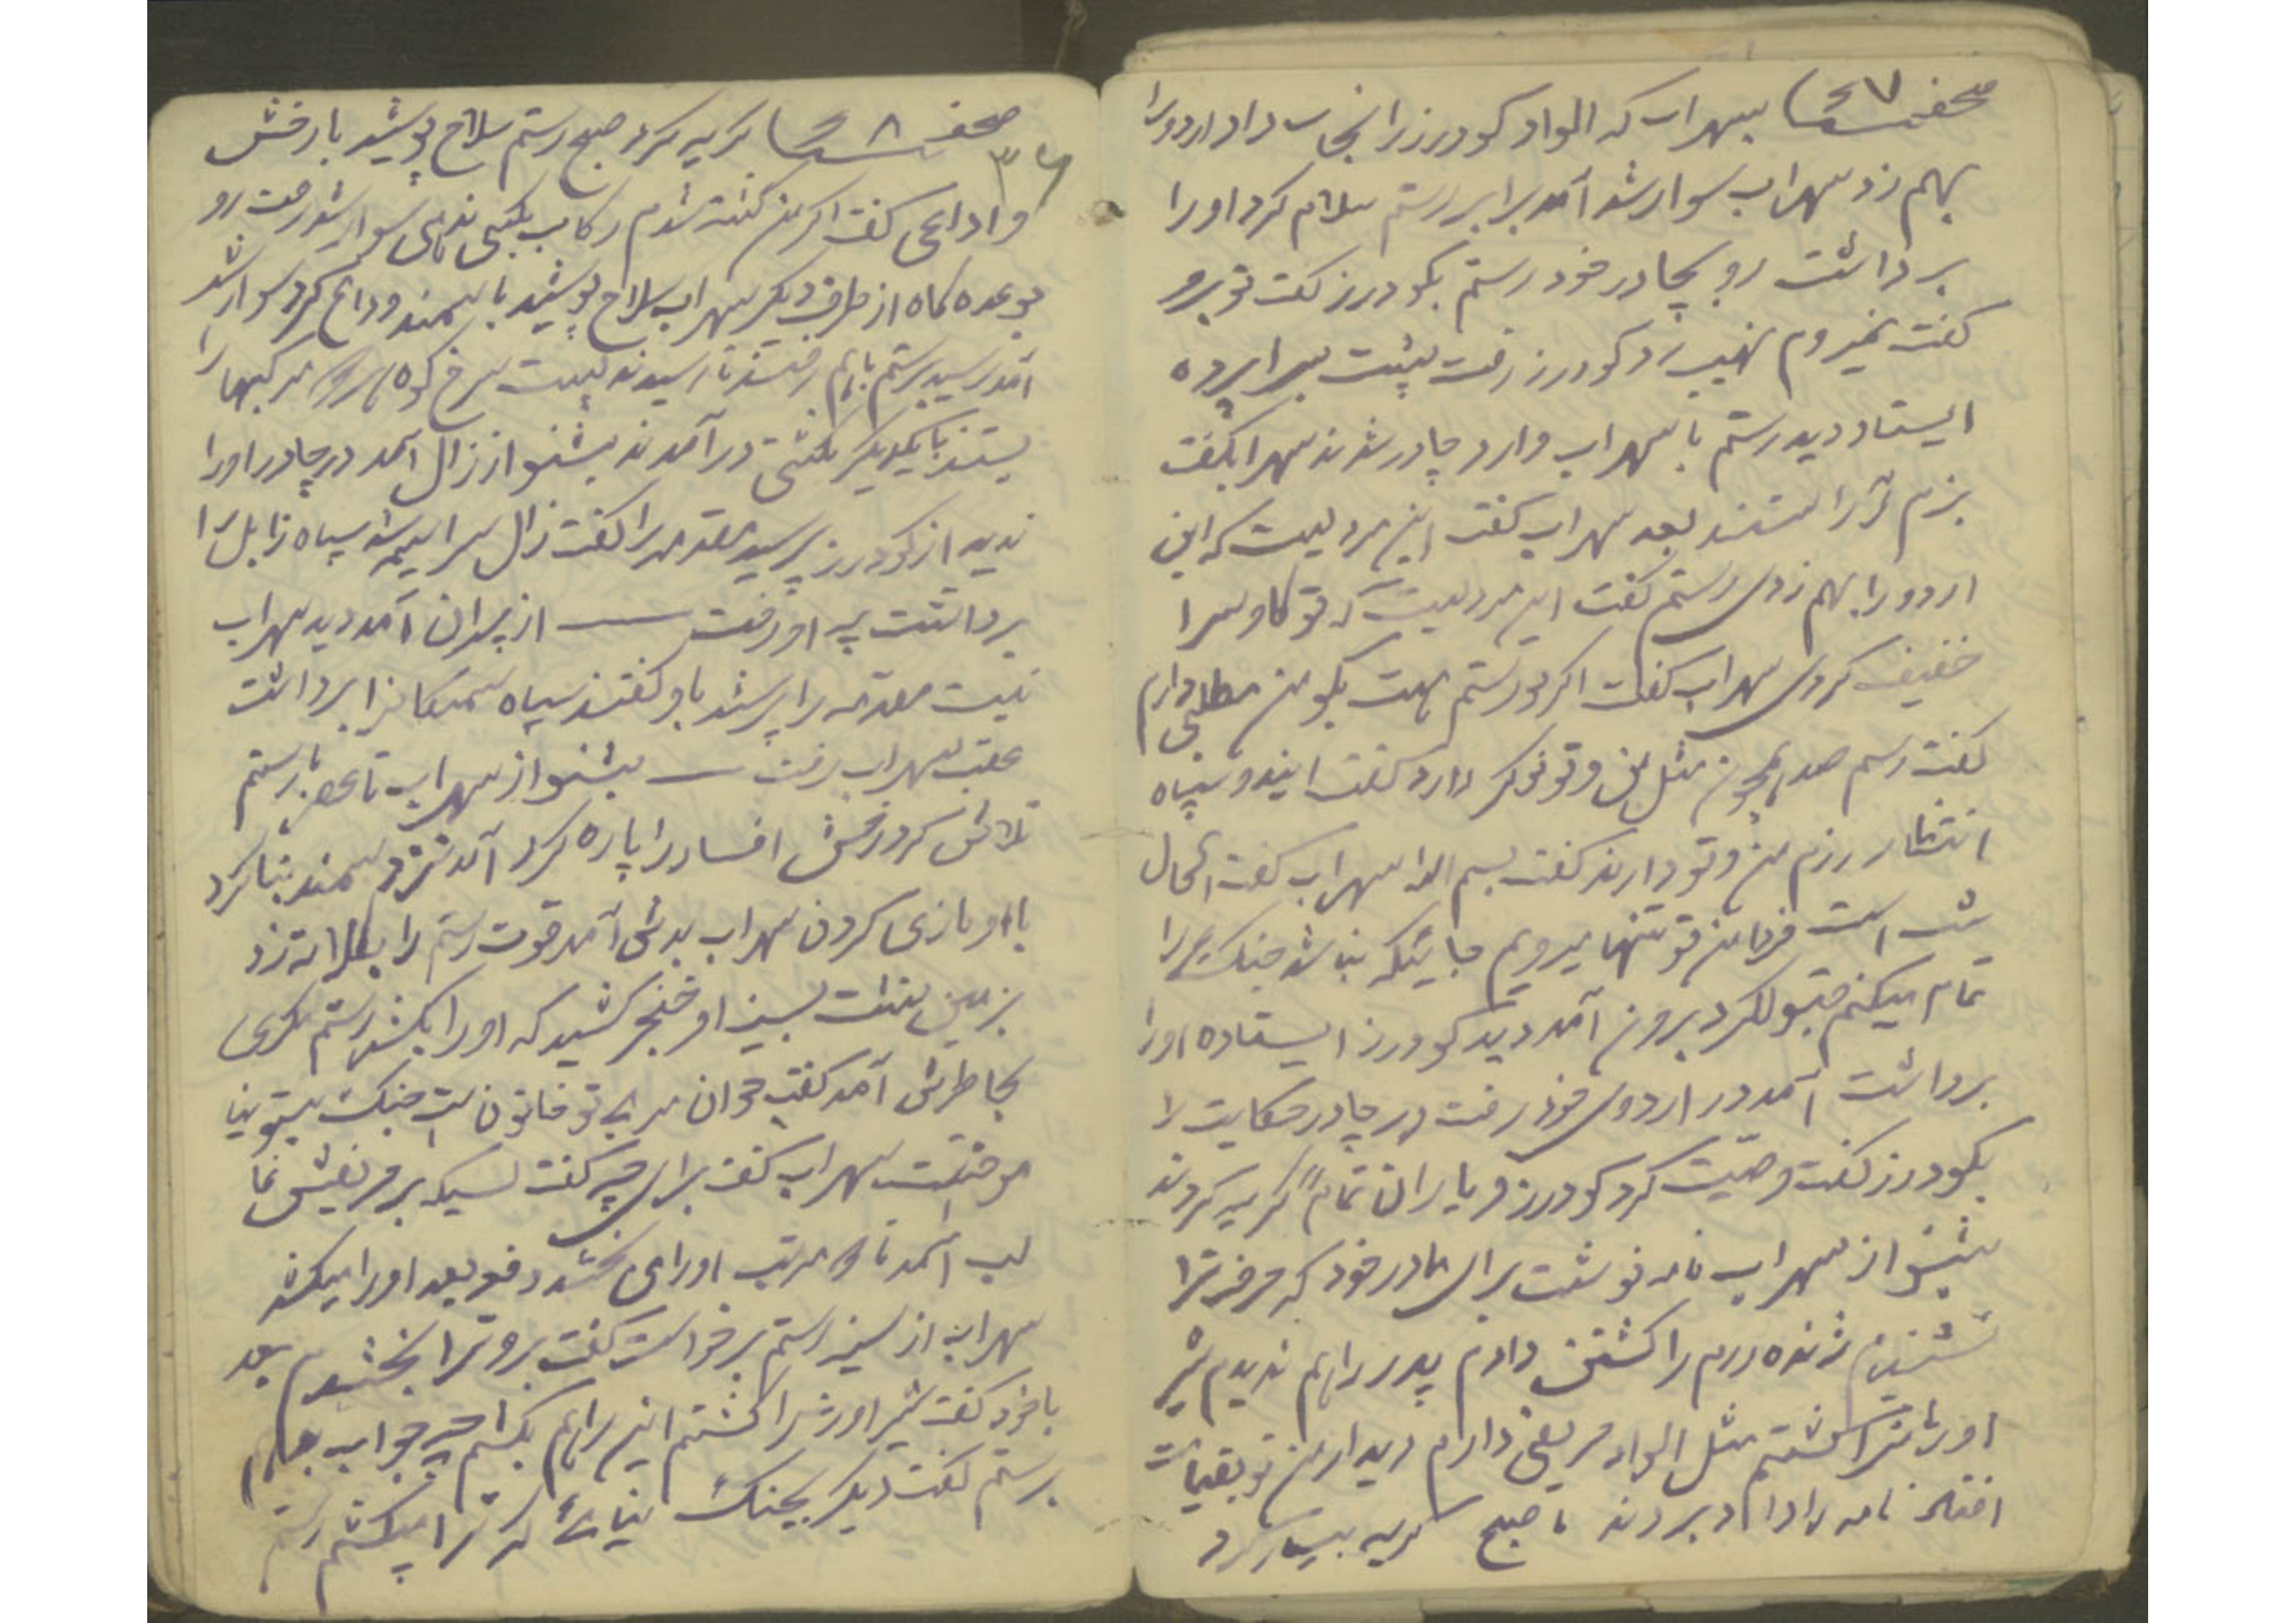 صفحه ۶۷ سهراب که الواد گودرز را نجات داد اردو را
بهم زد سهراب سوار شد آمد برابر رستم سلام کرد او را
برداشت رو بچادر خود رستم بگودرز گفت تو برو
گفت نمیروم نهیب زد گودرز رفت پشت سراپرده
ایستاد دید رستم با سهراب وارد چادر شدند سهراب گفت
بزم آراستند بعد سهراب گفت این مردیست که این
اردو را بهم زدی رستم گفت این مردیست که تو کاوس را
خفیف کردی سهراب گفت اگر تو رستم هست بگو من مطلبی دارم
گفت رستم صد همچون مثل من و تو نوکر دارد گفت ایندو سپاه
انتظار رزم من و تو دارند گفت بسم الله سهراب گفت الحال
شب است فردا من تو تنها میرویم جائیکه نباشد جنگ را
تمام میکنم قبول کرد برون آمد دید گودرز ایستاده او را
برداشت آمد در اردوی خود رفت در چادر حکایت را
بگودرز گفت وصیت کرد گودرز و یاران تماماً گریه کردند
بشنو از سهراب نامه نوشت برای مادر خود که حرف ترا
نشنیدم ژنده رزم را کشتن دادم پدر را هم ندیدم شیر
اوژن را کشتم مثل الواد حریفی دارم دیدار من تو بقیامت
افتاد نامه را داد بردند تا صبح گریه بسیار کرد
صفحه ۶۸ گریه کرد صبح رستم سلاح پوشید با رخش
۳۶
وداعی گفت اگر من کشته شدم رکاب بکسی ندهی سوار شد رفت رو
بوعده گاه از طرف دیگر سهراب سلاح پوشید با سمند وداع کرد سوار شد
آمد رسید برستم باهم رفتند تا رسیدند پشت سرخ کوه مرکبها را
بستند با یکدیگر بکشتی درآمدند بشنو از زال آمد در چادر او را
ندید از گودرز پرسید مقدمه را گفت زال سراسیمه شد سپاه زابل را
برداشت پی او رفت ـــ از پیران آمد دید سهراب
نیست مقدمه را پرسید باو گفتند سپاه سمنگان را برداشت
عقب سهراب رفت ـــ بشنو از سهراب تا عصر با رستم
تلاش کرد رخش افسار را پاره کرد آمد نزد سمند بنا کرد
با او بازی کردن سهراب بدش آمد قوت رستم را زد
بزمین نشست بسینه او خنجر کشید که او را بکشد رستم مکری
بخاطرش آمد گفت جوان مگر تو قانون جنگ
سهراب گفت برای چه گفت کسیکه بر حریفش
سه مرتبه او را می بخشد دفعه بعد او را میکشد
سهراب از سینه رستم برخواست گفت برو ترا بخشیدم بعد
با خود گفت شیر اوژن را کشتم این را هم بکشم چه جواب بدهم
برستم گفت دیگر بجنگ نیائی که ترا میکشم رستم